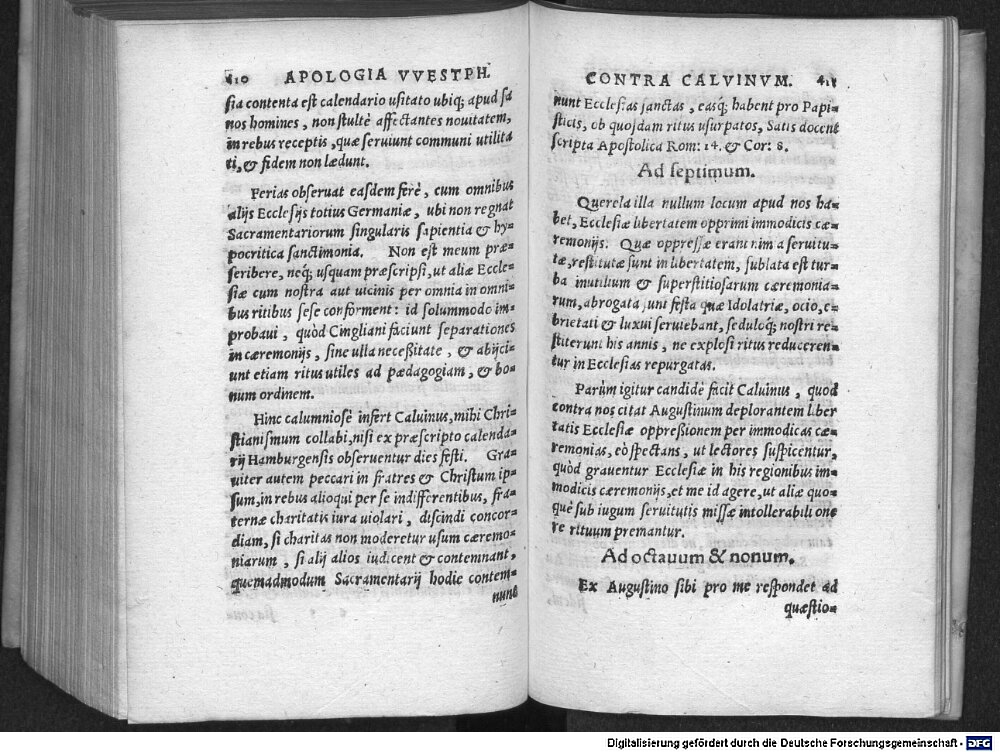 410 APOLOGIA VVESTPH.
sia contenta est calendario usitato ubiq; apud sa
nos homines, non stultè affectantes nouitatem,
in rebus receptis, quæ seruiunt communi utilita
ti, & fidem non lædunt.
Ferias obseruat easdem ferè, cum omnibus
alijs Ecclesijs totius Germaniæ, ubi non regnat
Sacramentariorum singularis sapientia & hy-
pocritica sanctimonia. Non est meum præ-
scribere, neq; usquam præscripsi, ut aliæ Eccle-
siæ cum nostra aut uicinis per omnia in omni-
bus ritibus sese conforment: id solummodo im-
probaui, quòd Cingliani faciunt separationes
in cæremonijs, sine ulla necessitate, & abijci-
unt etiam ritus utiles ad pædagogiam, & bo-
num ordinem.
Hinc calumniosè infert Caluinus, mihi Chri-
stianismum collabi, nisi ex præscripto calenda-
rij Hamburgensis obseruentur dies festi. Gra-
uiter autem peccari in fratres & Christum ip-
sum, in rebus alioqui per se indifferentibus, fra-
ternæ charitatis iura uiolari, discindi concor-
diam, si charitas non moderetur usum cæremo-
niarum, si alij alios iudicent & contemnant,
quemadmodum Sacramentarij hodie contem-
nunt
CONTRA CALVINVM. 411
nunt Ecclesias sanctas, easq; habent pro Papi-
sticis, ob quosdam ritus usurpatos, Satis docent
scripta Apostolica Rom: 14. & Cor: 8.
Ad septimum.
Querela illa nullum locum apud nos ha-
bet, Ecclesiæ libertatem opprimi immodicis cæ-
remonijs. Quæ oppressæ erant nimia seruitu-
tæ, restitutæ sunt in libertatem, sublata est tur-
ba inutilium & superstitiosarum cæremonia-
rum, abrogata sunt festa quæ Idolatriæ, ocio, e-
brietati & luxui seruiebant, seduloq; nostri re-
stiterunt his annis, ne explosi ritus reduceren-
tur in Ecclesias repurgatas.
Parùm igitur candidè facit Caluinus, quod
contra nos citat Augustinum deplorantem liber
tatis Ecclesiæ oppressionem per immodicas cæ-
remonias, eò spectans, ut lectores suspicentur,
quòd grauentur Ecclesiæ in his regionibus im-
modicis cæremonijs, et me id agere, ut aliæ quo-
què sub iugum seruitutis missæ intollerabili one
re rituum premantur.
Ad octauum & nonum.
Ex Augustino sibi pro me respondet ad
quæstio-
Digitalisierung gefördert durch die Deutsche Forschungsgemeinschaft - DFG